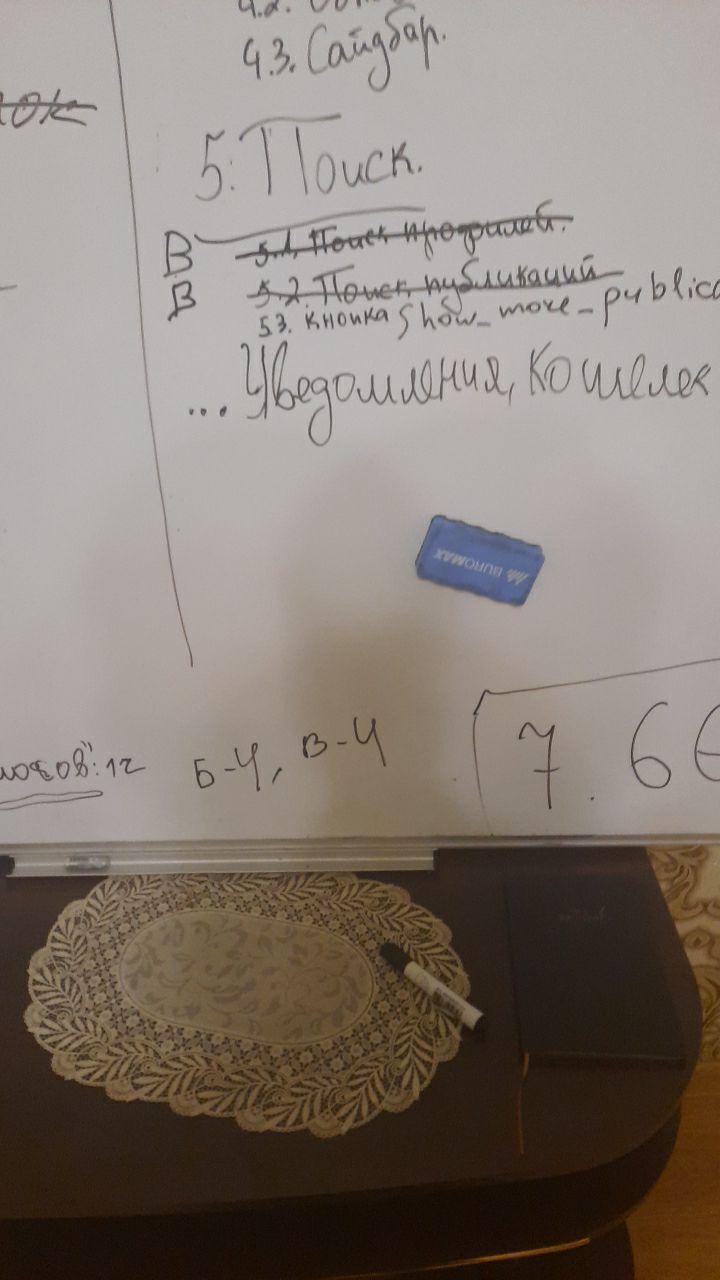 4.2.
4.3. Сайдбар.
5. Поиск.
В 5.1. Поиск профилей.
В 5.2. Поиск публикаций
5.3. кнопка show_more_public
... Уведомления, Кошелек
BUROMAX
12 Б-4, В-4
7. 6